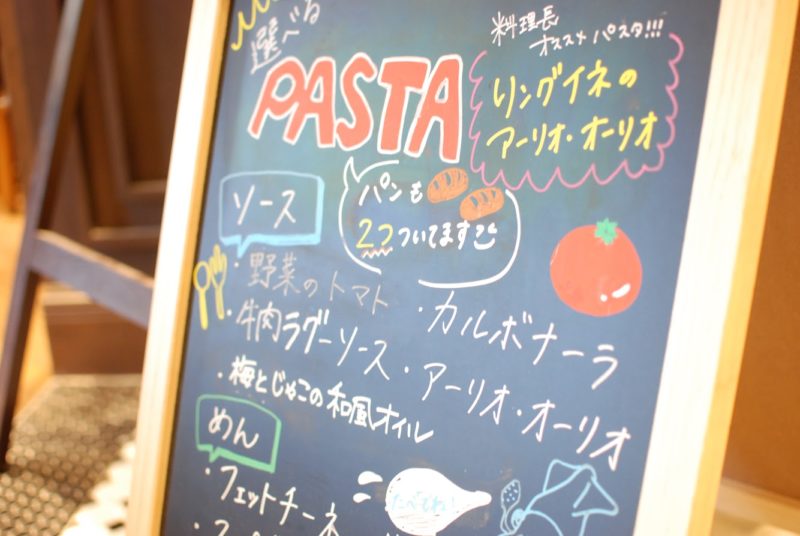 選べる
PASTA
料理長
オススメ パスタ!!!
リングイネの
アーリオ・オーリオ
パンも
2つ
ついてます
ソース
・野菜のトマト
・カルボナーラ
・牛肉ラグーソース
・アーリオ・オーリオ
・梅とじゃこの和風オイル
めん
・フェットチーネ
たべてね!